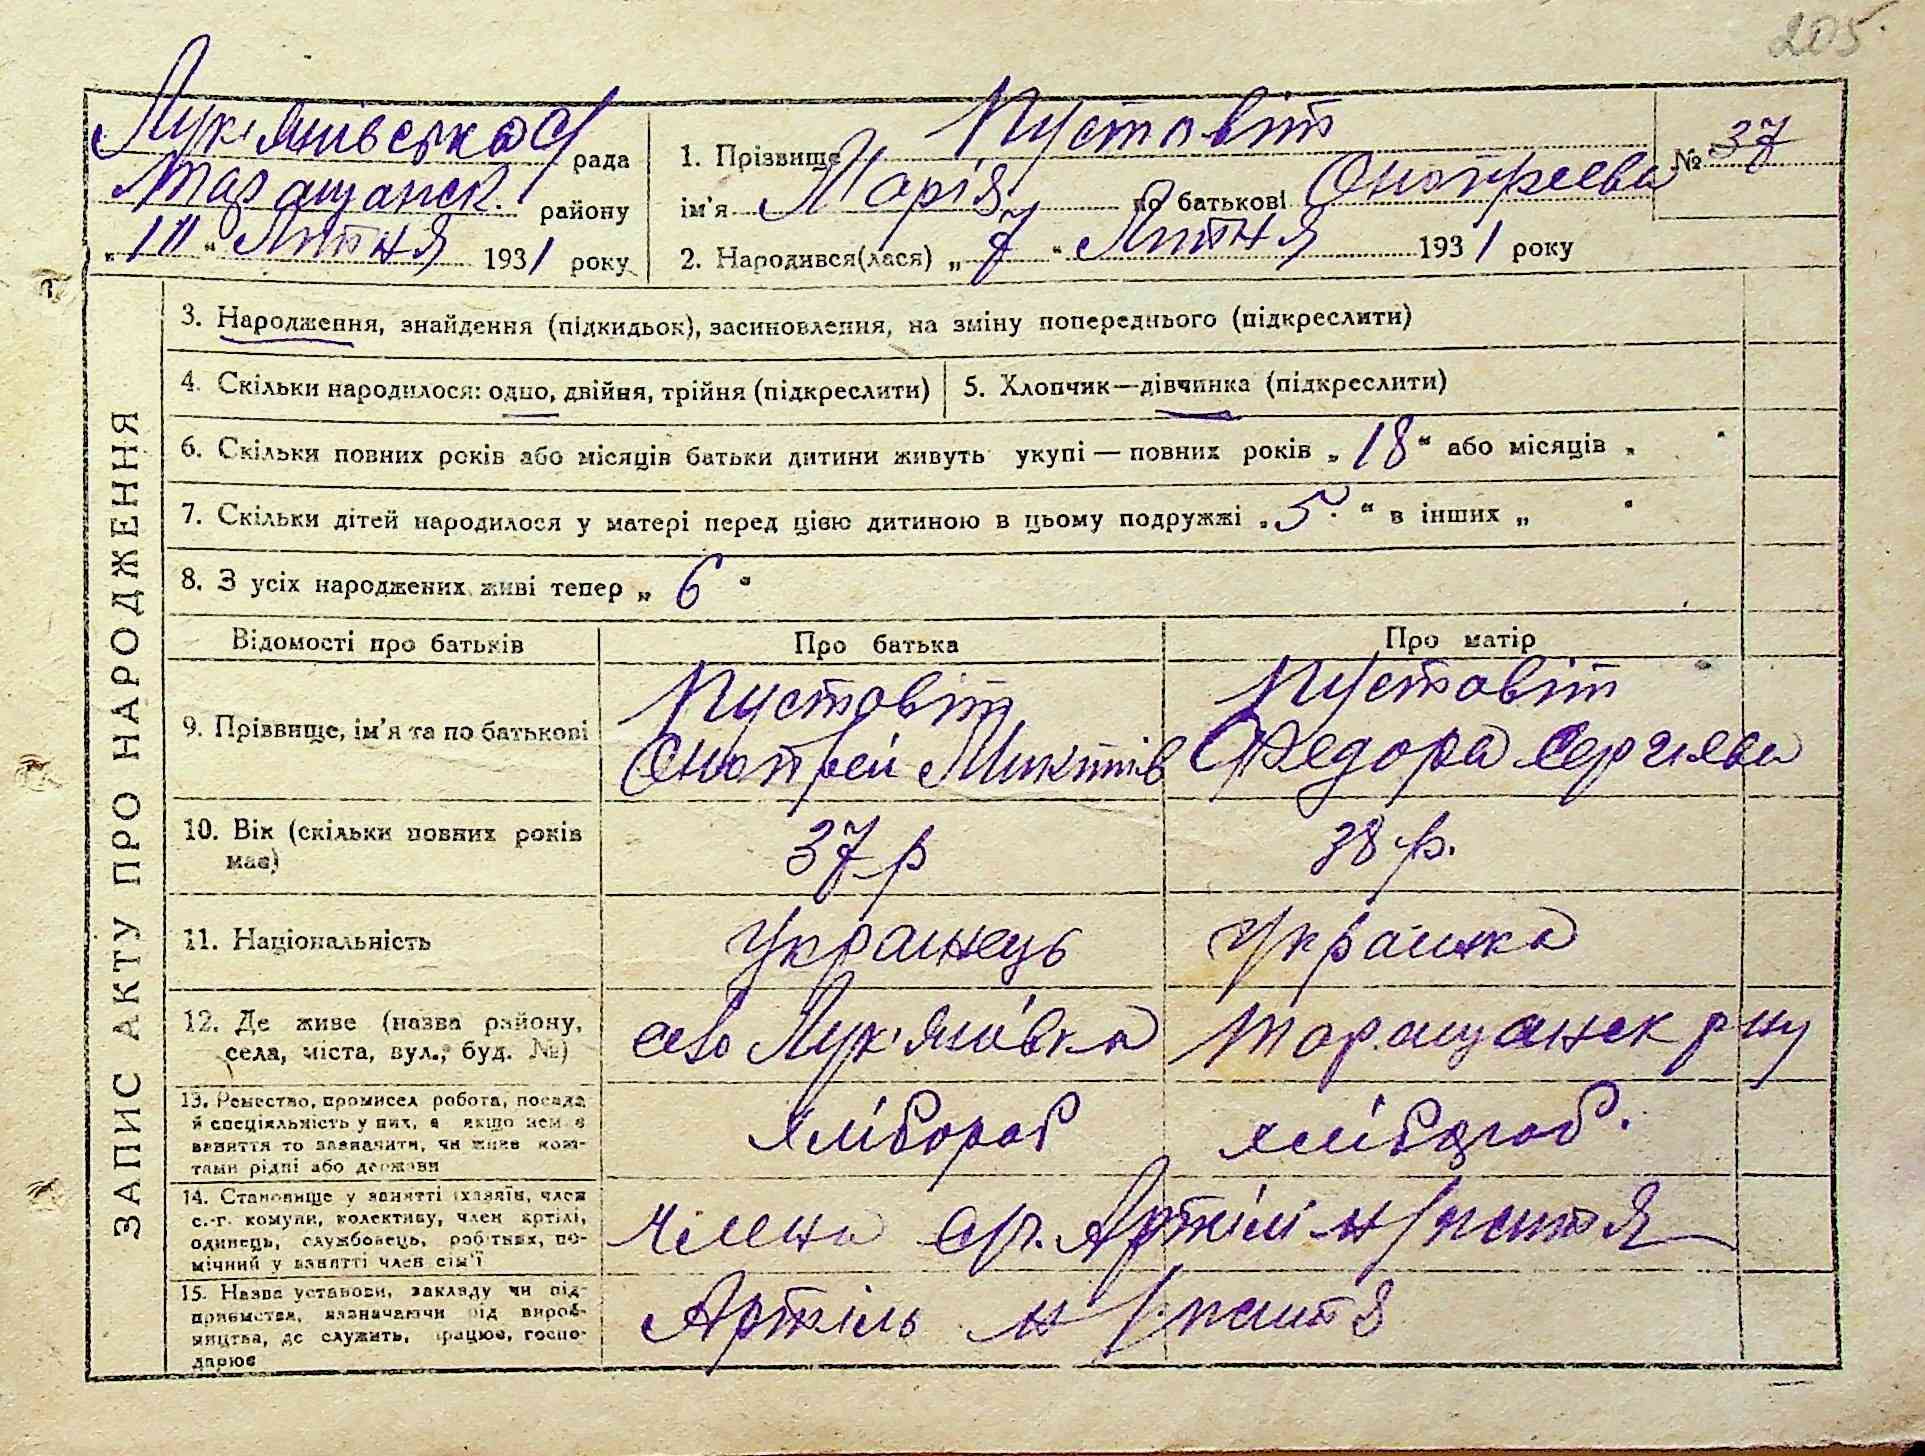 205.
Лук'янівська с/рада
Таращанск. району
„ “ Липня 1931 року
1. Прізвище Пустовіт
№ 37
ім'я Марія по батькові Онопреєва
2. Народився(лася) „7“ Липня 1931 року
ЗАПИС АКТУ ПРО НАРОДЖЕННЯ
3. Народження, знайдення (підкидьок), засиновлення, на зміну попереднього (підкреслити)
4. Скільки народилося: одно, двійня, трійня (підкреслити)
5. Хлопчик—дівчинка (підкреслити)
6. Скільки повних років або місяців батьки дитини живуть укупі — повних років „18“ або місяців „ “
7. Скільки дітей народилося у матері перед цією дитиною в цьому подружжі „5“ в інших „ “
8. З усіх народжених живі тепер „6“
Відомості про батьків
Про батька
Про матір
9. Прізвище, ім'я та по батькові
Пустовіт
Онопрей Микитів
Пустовіт
Федора Сергиєва
10. Вік (скільки повних років
має)
37 р
38 р.
11. Національність
Українець
Українка
12. Де живе (назва району,
села, міста, вул., буд. №)
село Лук'янівка
Таращанск р-ну
13. Ремество, промисел робота, посада
й спеціяльність у них, а якщо нема
заняття то зазначити, чи живе кош-
тами рідні або держави
хлібороб
хлібороб.
14. Становище у занятті (хазяїн, член
с.-г. комуни, колективу, член артілі,
одинець, службовець, робітник, по-
мічний у занятті член сім'ї
члени Артілі життя
15. Назва установи, закладу чи під-
приємства, зазначаючи рід вироб-
ництва, де служить, працює, госпо-
дарює
Артіль життя